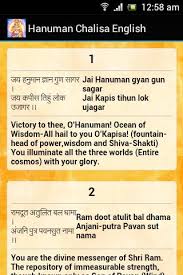 12:58 am
Hanuman Chalisa English
1
जय हनुमान ज्ञान गुण सागर । Jai Hanuman gyan gun sagar
जय कपीस तिहुं लोक उजागर Jai Kapis tihun lok ujagar
Victory to thee, O'Hanuman! Ocean of
Wisdom-All hail to you O'Kapisa! (fountain-
head of power,wisdom and Shiva-Shakti)
You illuminate all the three worlds (Entire
cosmos) with your glory.
2
रामदूत अतुलित बल धामा । Ram doot atulit bal dhama
अंजनि पुत्र पवनसुत नामा Anjani-putra Pavan sut nama
You are the divine messenger of Shri Ram. The
repository of immeasurable strength,